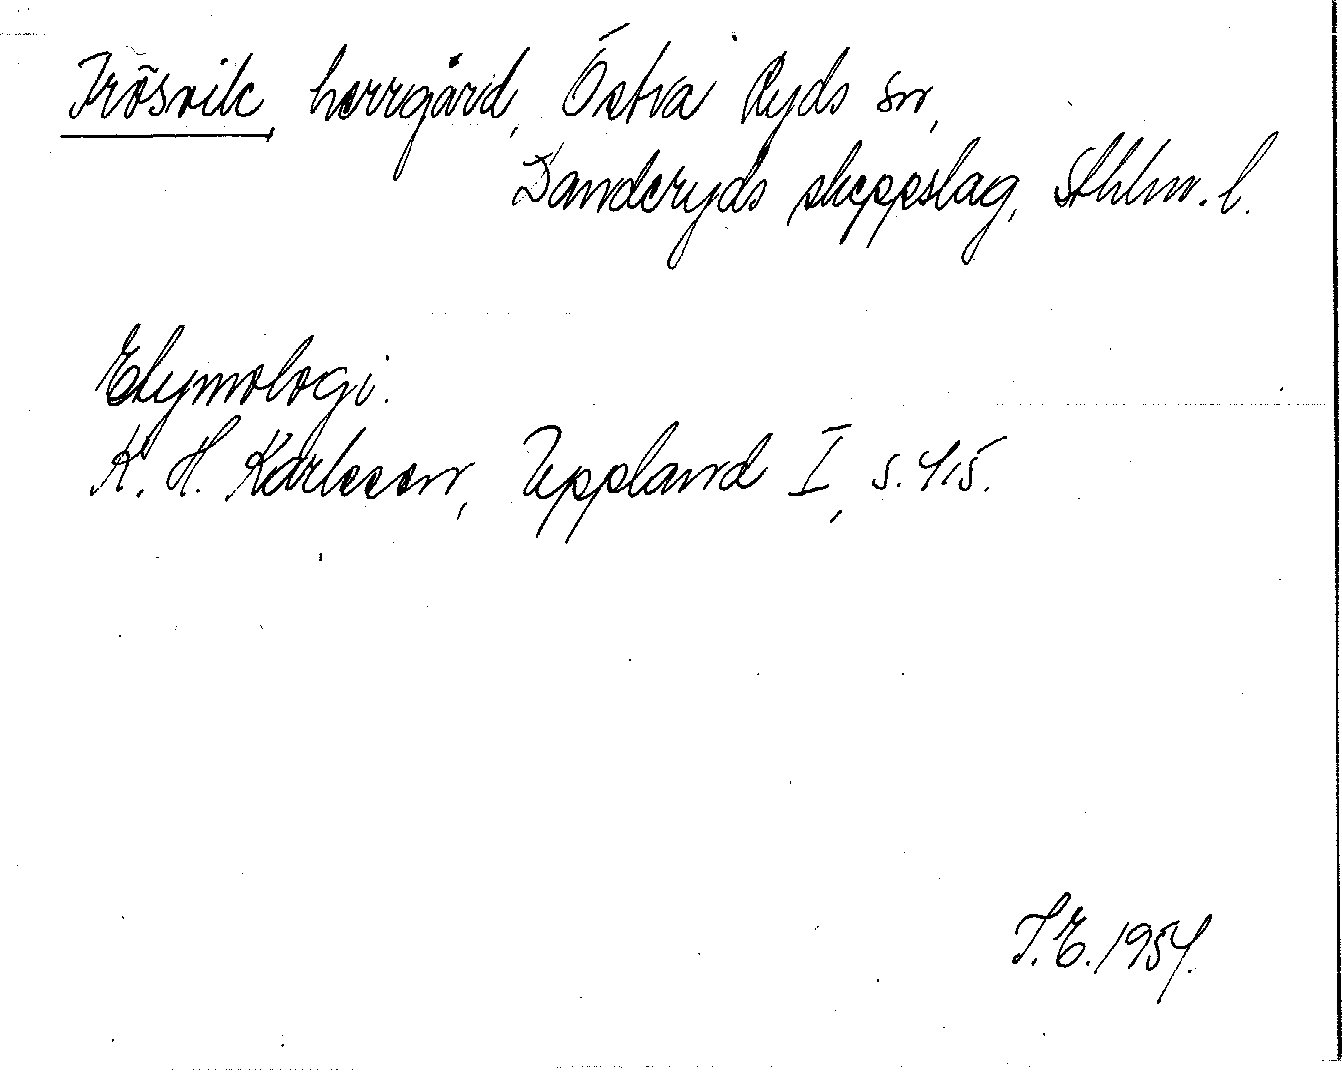 Frösvik, herrgård, Östra Ryds sn,
Danderyds skeppslag, Sthlm. l.
Etymologi.
K. H. Karlsson, Uppland I, s. 415.
I. E. 1954.